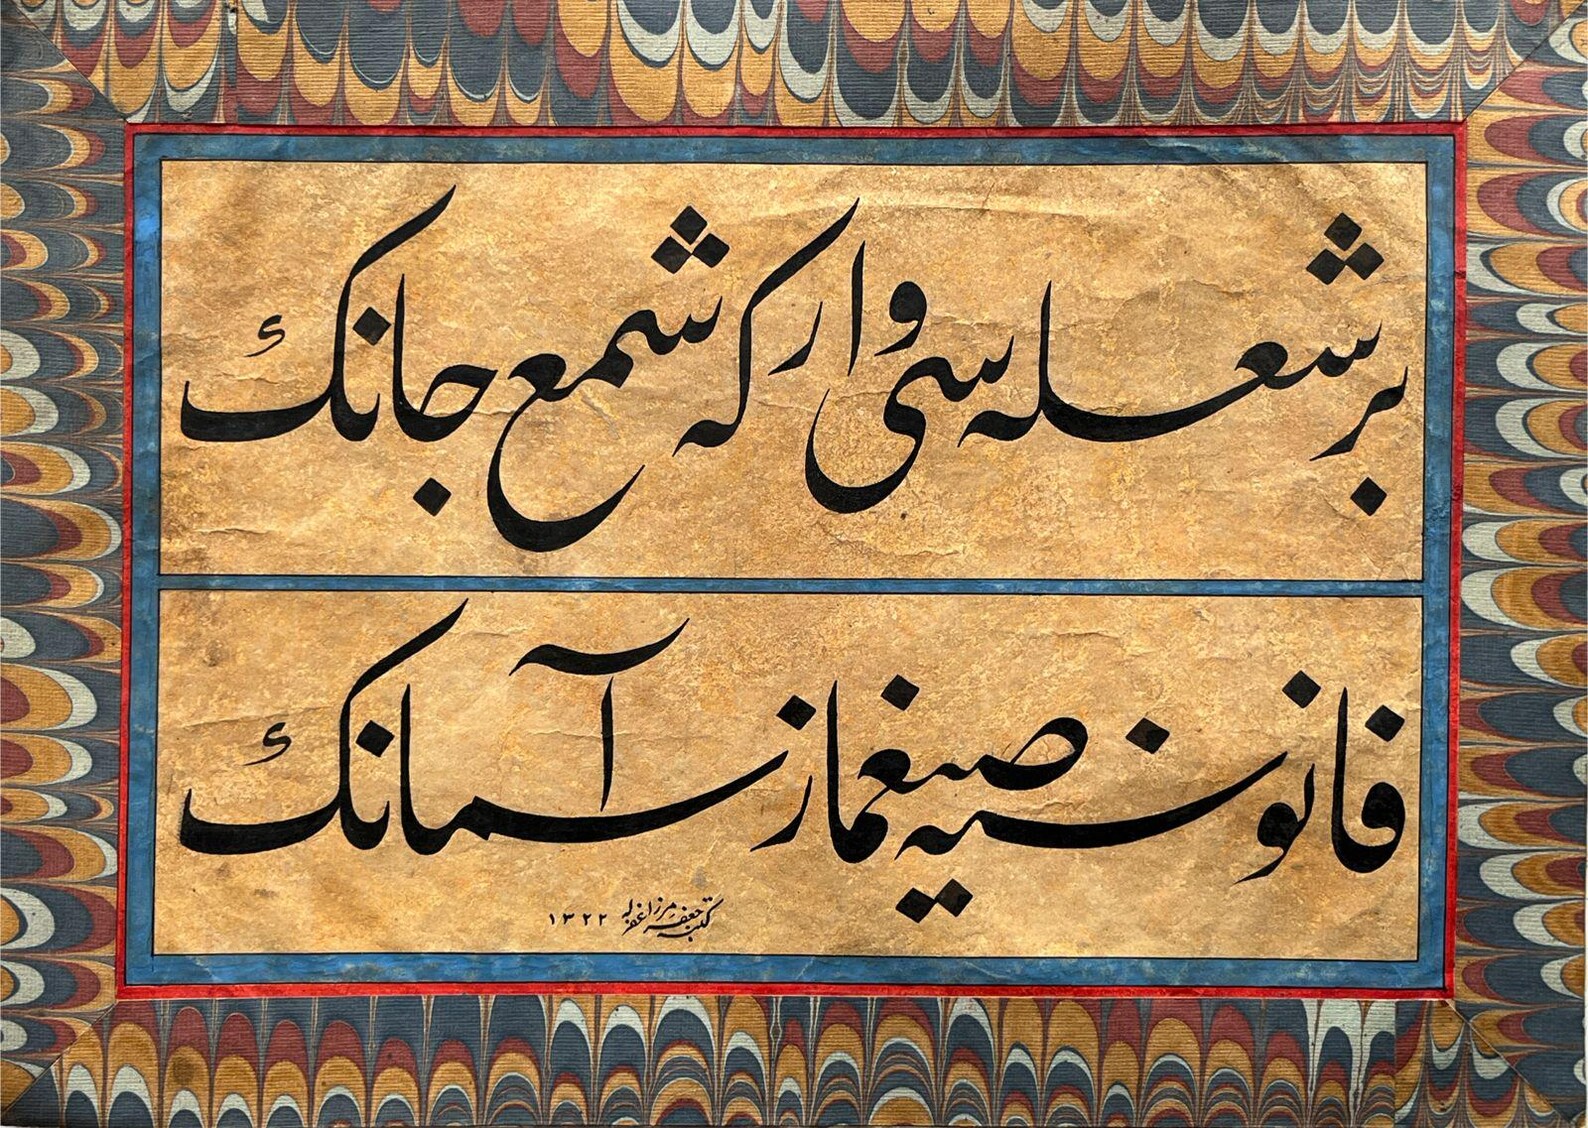 بر شعله سی وار که شمع جانک
فانوسنه صیغماز آسمانک
کتبه جعفر میرزا غفر له ١٣٢٢